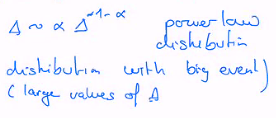 Δ ~ α Δ^-1-α power law
distribution
distribution with big event)
(large values of Δ